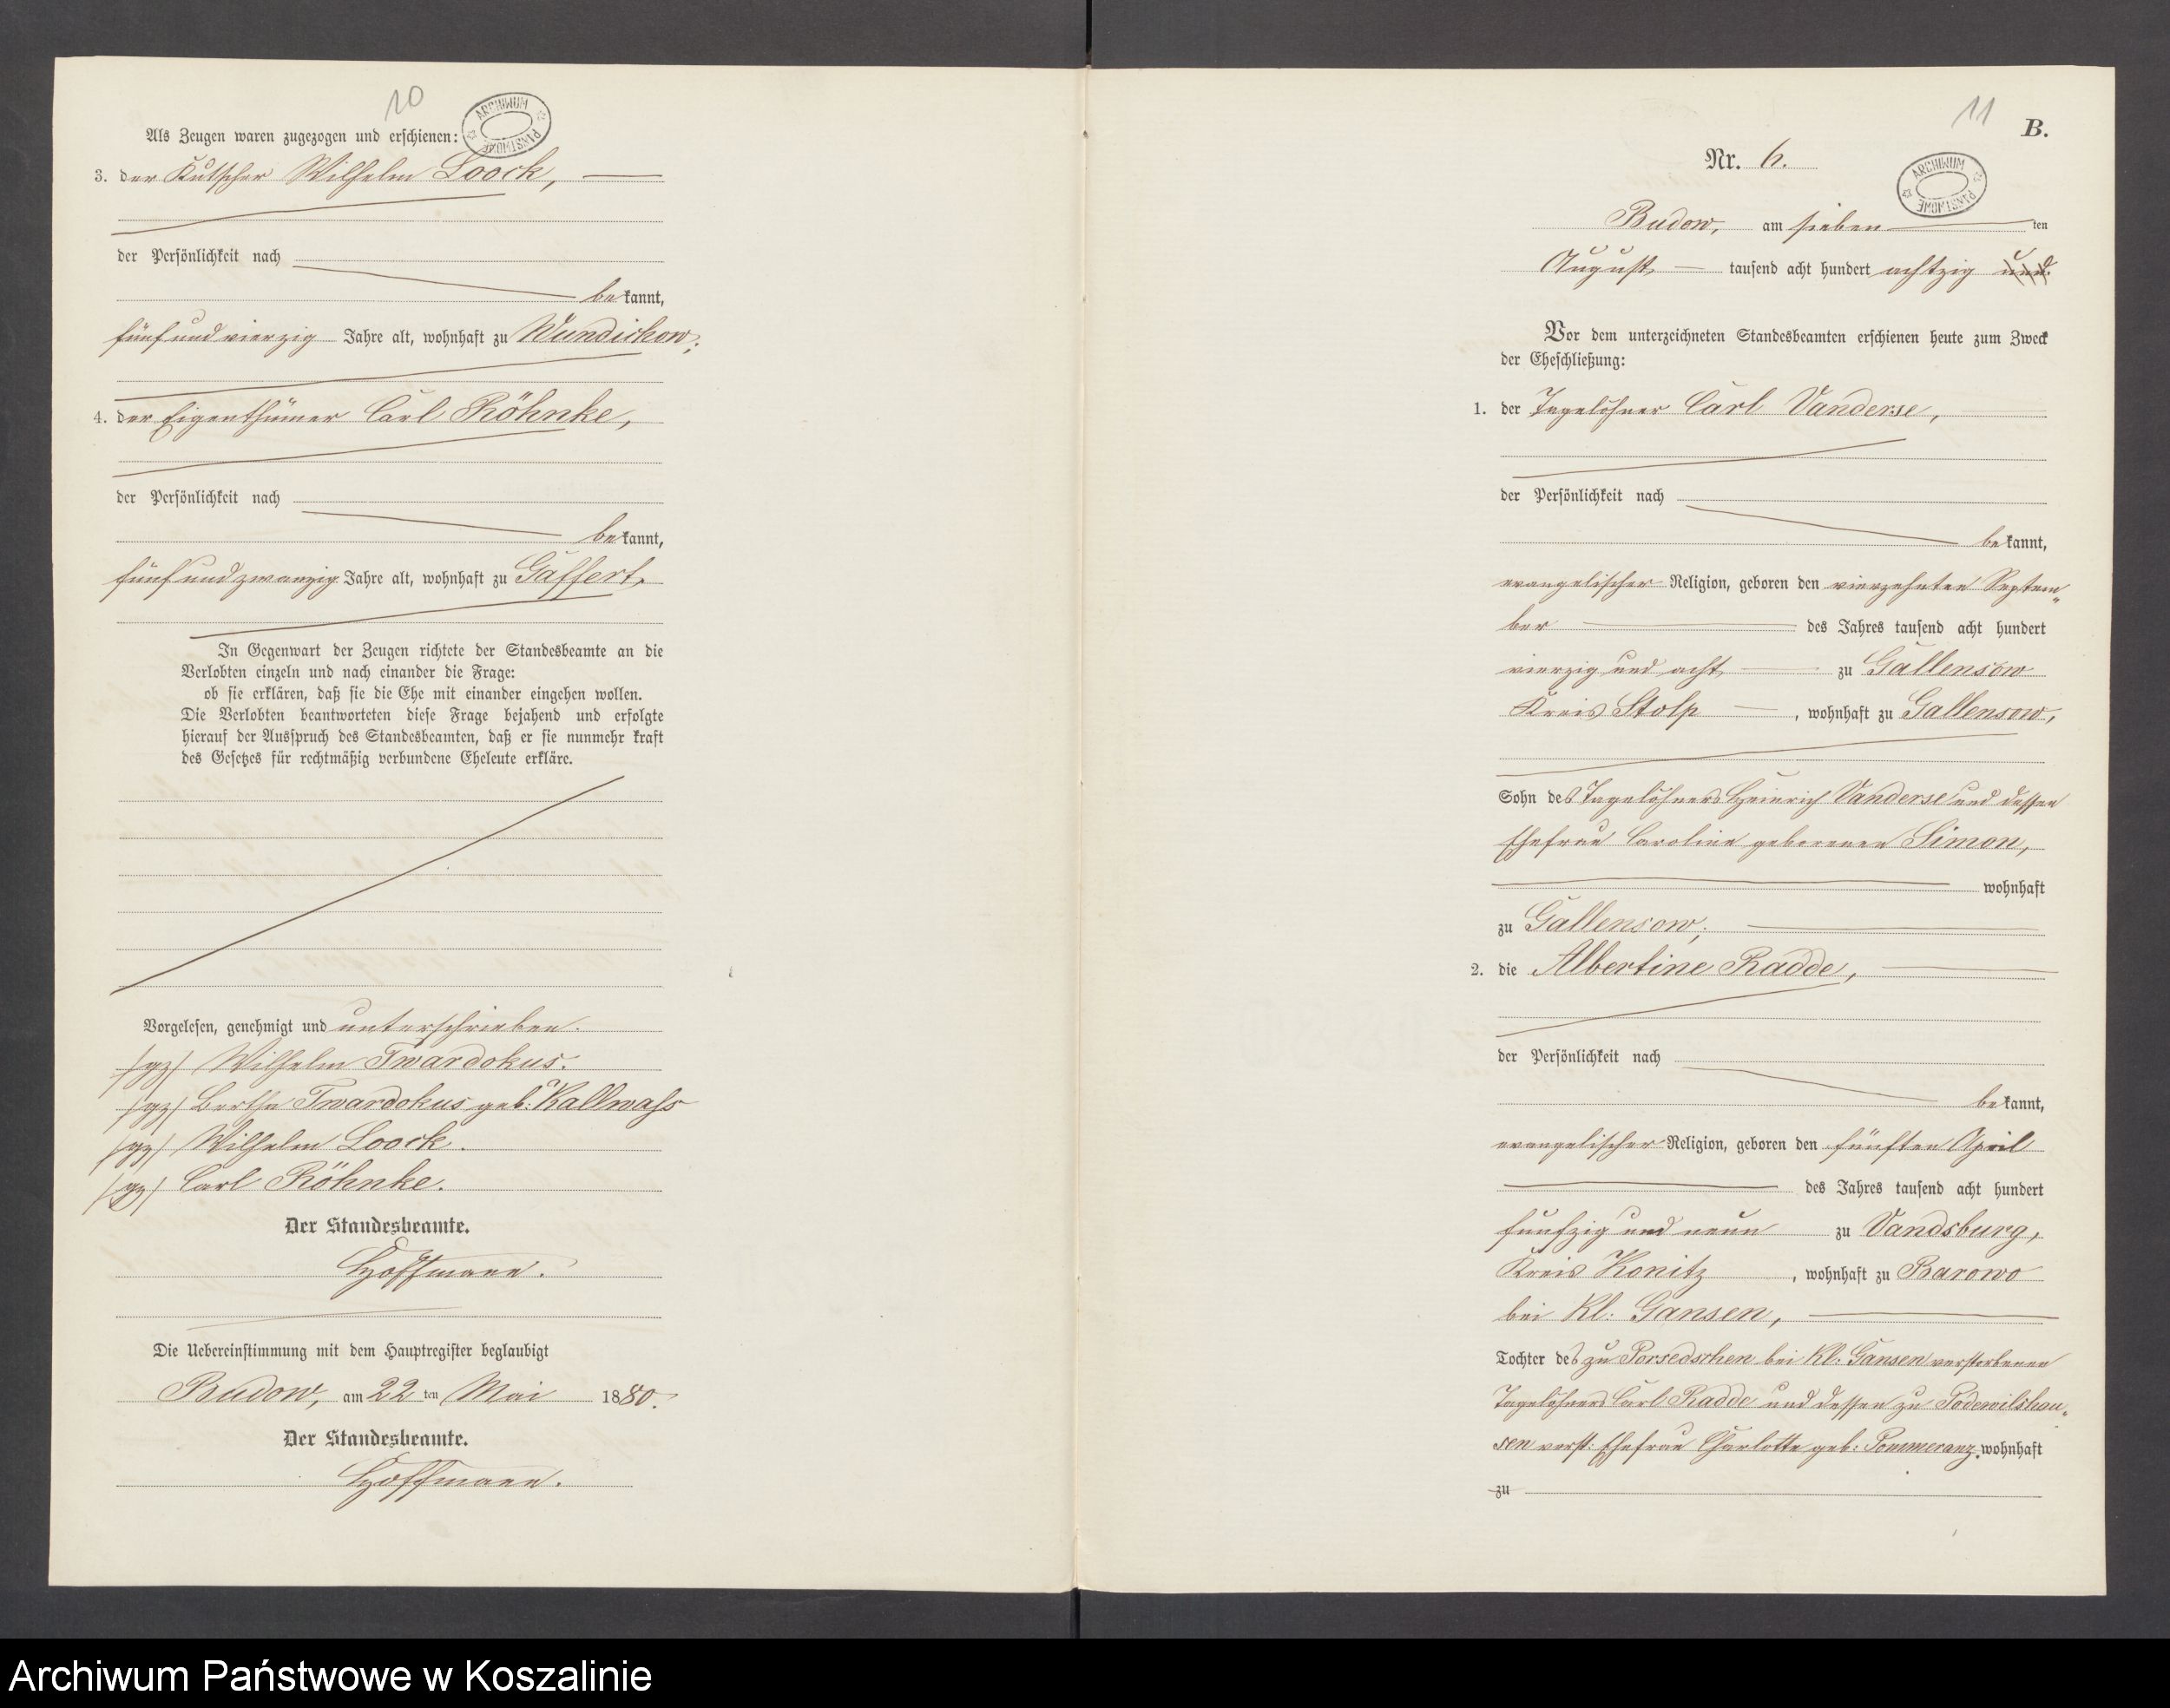 10
ARCHIWUM PAŃSTWOWE
Als Zeugen waren zugezogen und erschienen:
3. der Kutscher Wilhelm Loock,
der Persönlichkeit nach
bekannt,
fünf und vierzig Jahre alt, wohnhaft zu Wundichow;
4. der Eigenthümer Carl Röhnke,
der Persönlichkeit nach
bekannt,
fünf und zwanzig Jahre alt, wohnhaft zu Gaffert.
In Gegenwart der Zeugen richtete der Standesbeamte an die
Verlobten einzeln und nach einander die Frage:
ob sie erklären, daß sie die Ehe mit einander eingehen wollen.
Die Verlobten beantworteten diese Frage bejahend und erfolgte
hierauf der Ausspruch des Standesbeamten, daß er sie nunmehr kraft
des Gesetzes für rechtmäßig verbundene Eheleute erkläre.
Vorgelesen, genehmigt und unterschrieben.
/gz/ Wilhelm Twardokus.
/gz/ Bertha Twardokus geb: Kallwass
/gz/ Wilhelm Loock.
/gz/ Carl Röhnke.
Der Standesbeamte.
Hoffmann.
Die Uebereinstimmung mit dem Hauptregister beglaubigt
Budow, am 22 ten Mai 1880.
Der Standesbeamte.
Hoffmann.
11
B.
Nr. 6.
ARCHIWUM PAŃSTWOWE
Budow, am sieben ten
August tausend acht hundert achtzig und
Vor dem unterzeichneten Standesbeamten erschienen heute zum Zweck
der Eheschließung:
1. der Tagelöhner Carl Vanderse,
der Persönlichkeit nach
bekannt,
evangelischer Religion, geboren den vierzehnten Septem„
ber des Jahres tausend acht hundert
vierzig und acht zu Gallensow
Kreis Stolp, wohnhaft zu Gallensow,
Sohn des Tagelöhners Heinrich Vanderse und dessen
Ehefrau Caroline geborenen Simon,
wohnhaft
zu Gallensow;
2. die Albertine Radde,
der Persönlichkeit nach
bekannt,
evangelischer Religion, geboren den fünften April
des Jahres tausend acht hundert
fünfzig und neun zu Vandsburg,
Kreis Konitz, wohnhaft zu Barowo
bei Kl: Gansen,
Tochter des zu Porsedschen bei Kl: Gansen verstorbenen
Tagelöhners Carl Radde und dessen zu Podewilshau„
sen verst: Ehefrau Charlotte geb: Pommeranz. wohnhaft
zu
Archiwum Państwowe w Koszalinie